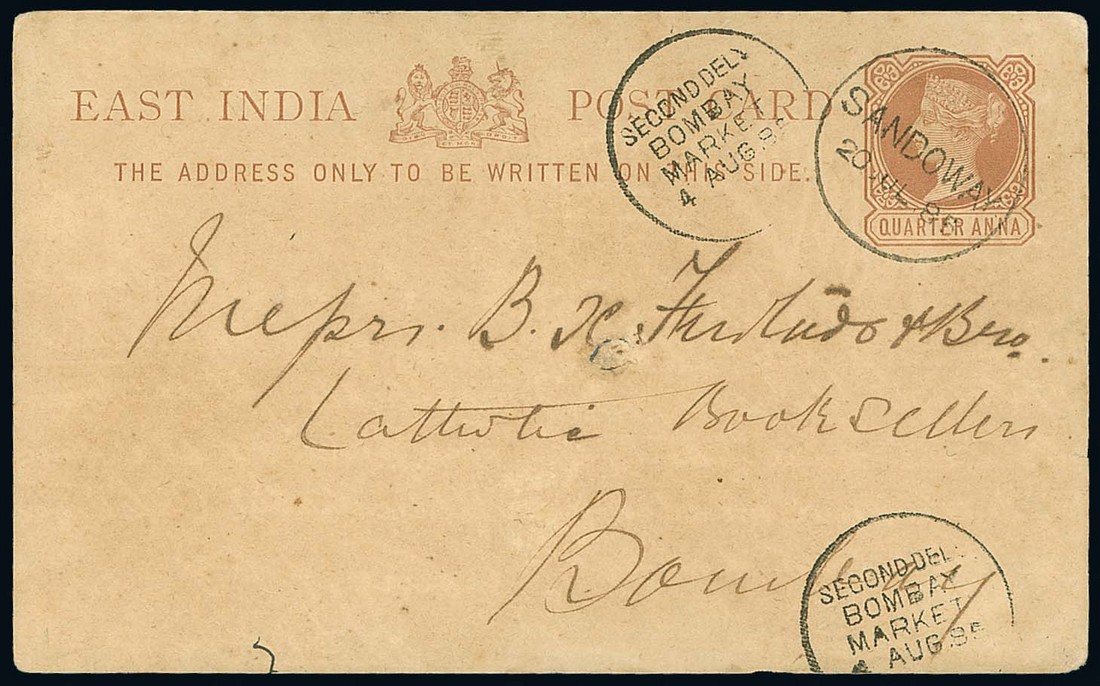 EAST INDIA POST CARD
THE ADDRESS ONLY TO BE WRITTEN ON THIS SIDE.
QUARTER ANNA
SECOND DELY
BOMBAY
MARKET
4 AUG. 85
SANDOWAY
20 85
Messrs. B. X. Furtado & Bro.
Catholic Booksellers
Bombay
SECOND DEL
BOMBAY
MARKET
4 AUG. 85